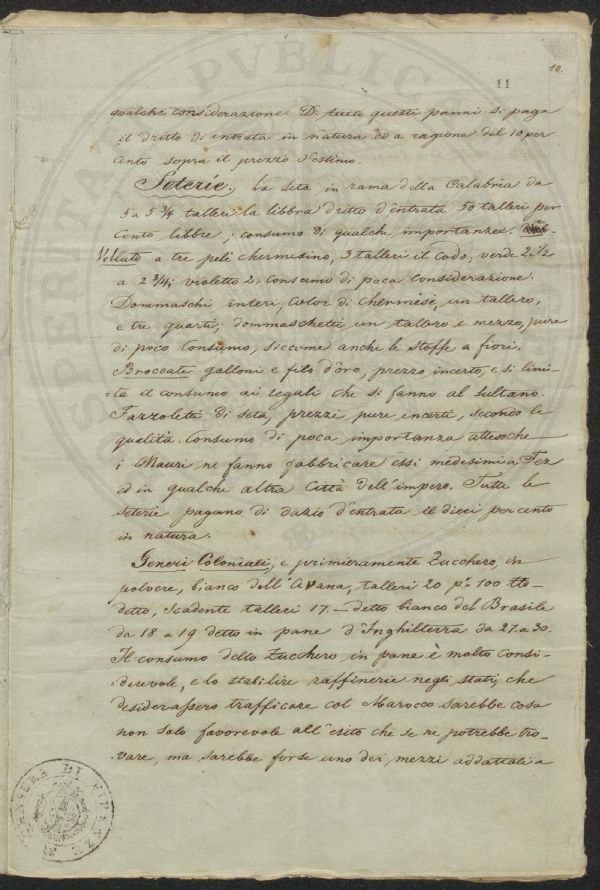 10.
11
qualche considerazione. Di tutti questi panni si paga
il dritto di entrata in natura ed a ragione del 10 per
cento sopra il prezzo d'estimo.
Seterie. La seta in rama della Calabria da
5 a 5 3/4 talleri la libbra dritto d'entrata 50 talleri per
cento libbre; consumo di qualche importanza.
Velluto a tre peli chermisino, 3 talleri il Codo; verde 2 1/2
a 2 3/4; violetto 2; consumo di poca considerazione.
Dommaschi interi, color di chermesè, un tallero,
e tre quarti; dommaschetti un tallero e mezzo, pure
di poco consumo, siccome anche le stoffe a fiori.
Broccate galloni e filo d'oro, prezzo incerto, e si limi-
=ta il consumo ai regali che si fanno al Sultano.
Fazzoletti di seta, prezzi pure incerti, secondo le
qualità. Consumo di poca importanza attesoche
i Mauri ne fanno fabbricare essi medesimi a Fez
ed in qualche altra Città dell'impero. Tutte le
Seterie pagano di dazio d'entrata il dieci per cento
in natura.
Generi Coloniali, e primieramente Zucchero, in
polvere, bianco dell'Avana, talleri 20 p.% 100 tto-
detto, scadente talleri 17.- detto bianco del Brasile
da 18 a 19 detto in pane d'Inghilterra da 27 a 30.
Il consumo dello Zucchero in pane è molto consi-
derevole, e lo stabilire raffinerie negli stati, che
desiderassero trafficare col Marocco sarebbe cosa
non solo favorevole all'esito che se ne potrebbe tro-
vare, ma sarebbe forse uno dei mezzi addattati a